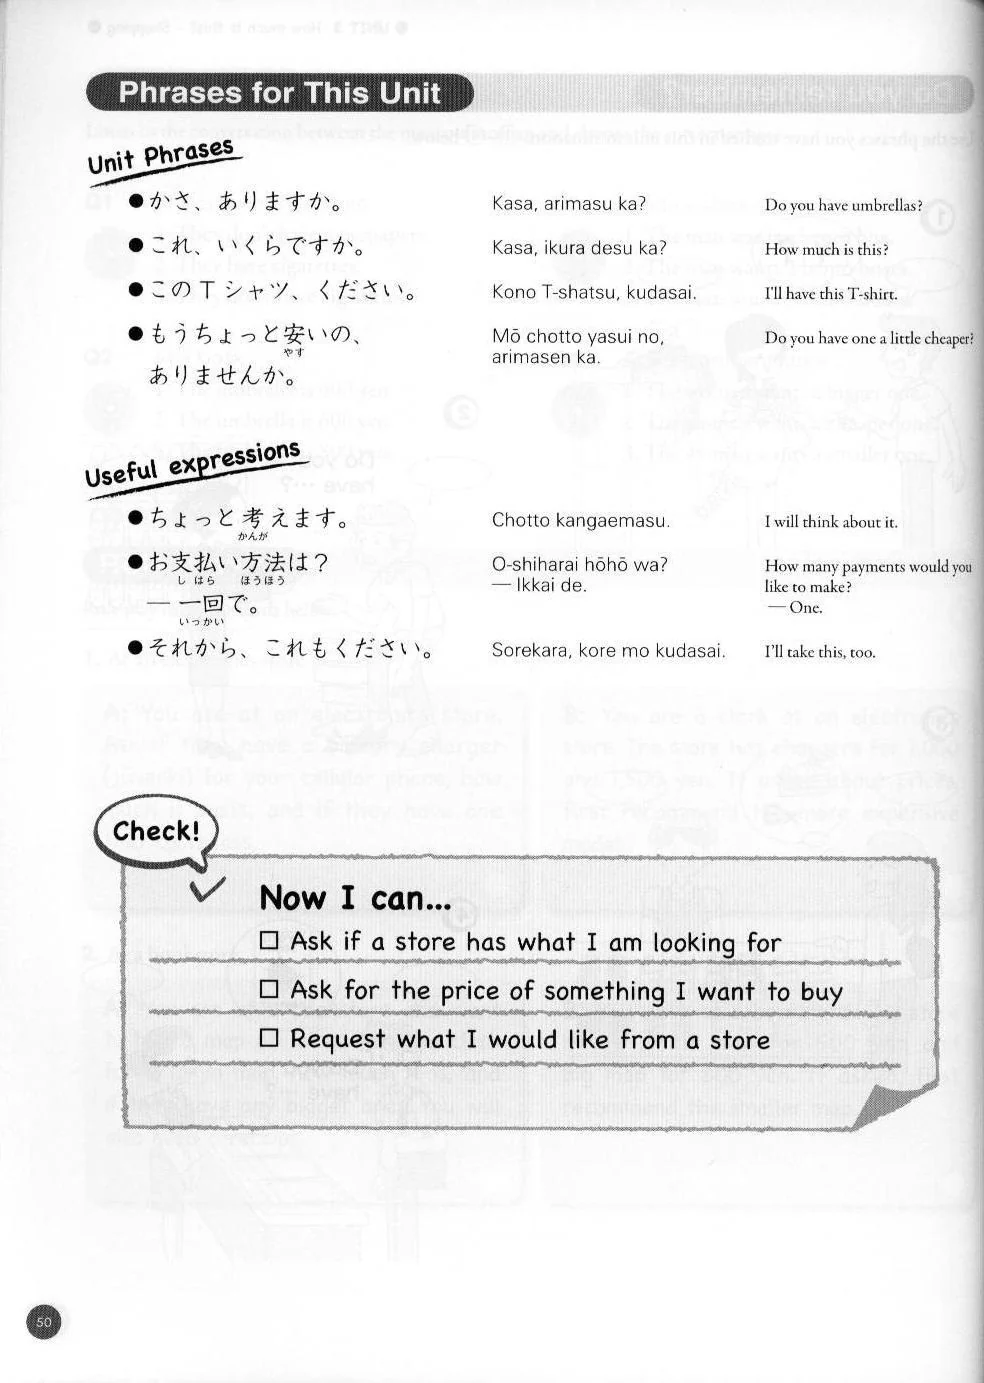 Phrases for This Unit
Unit Phrases
●かさ、ありますか。 Kasa, arimasu ka? Do you have umbrellas?
●これ、いくらですか。 Kasa, ikura desu ka? How much is this?
●このTシャツ、ください。 Kono T-shatsu, kudasai. I'll have this T-shirt.
●もうちょっと安いの、 Mō chotto yasui no, Do you have one a little cheaper?
やす
ありませんか。 arimasen ka.
Useful expressions
●ちょっと考えます。 Chotto kangaemasu. I will think about it.
かんが
●お支払い方法は? O-shiharai hōhō wa? How many payments would you
しはら ほうほう
— 一回で。 — Ikkai de. like to make?
いっかい
— One.
●それから、これもください。 Sorekara, kore mo kudasai. I'll take this, too.
Check!
Now I can...
□ Ask if a store has what I am looking for
□ Ask for the price of something I want to buy
□ Request what I would like from a store
50